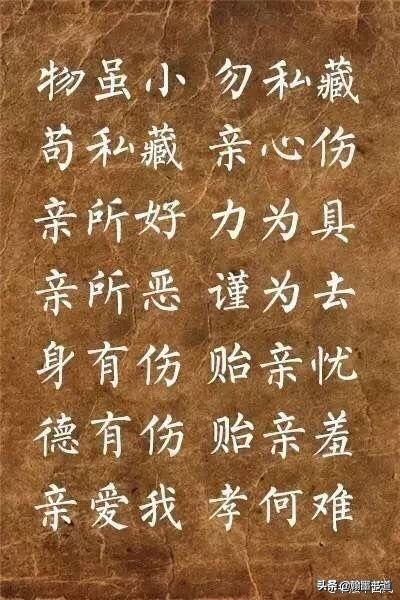 物虽小 勿私藏
苟私藏 亲心伤
亲所好 力为具
亲所恶 谨为去
身有伤 贻亲忧
德有伤 贻亲羞
亲爱我 孝何难
头条 @翰墨书道